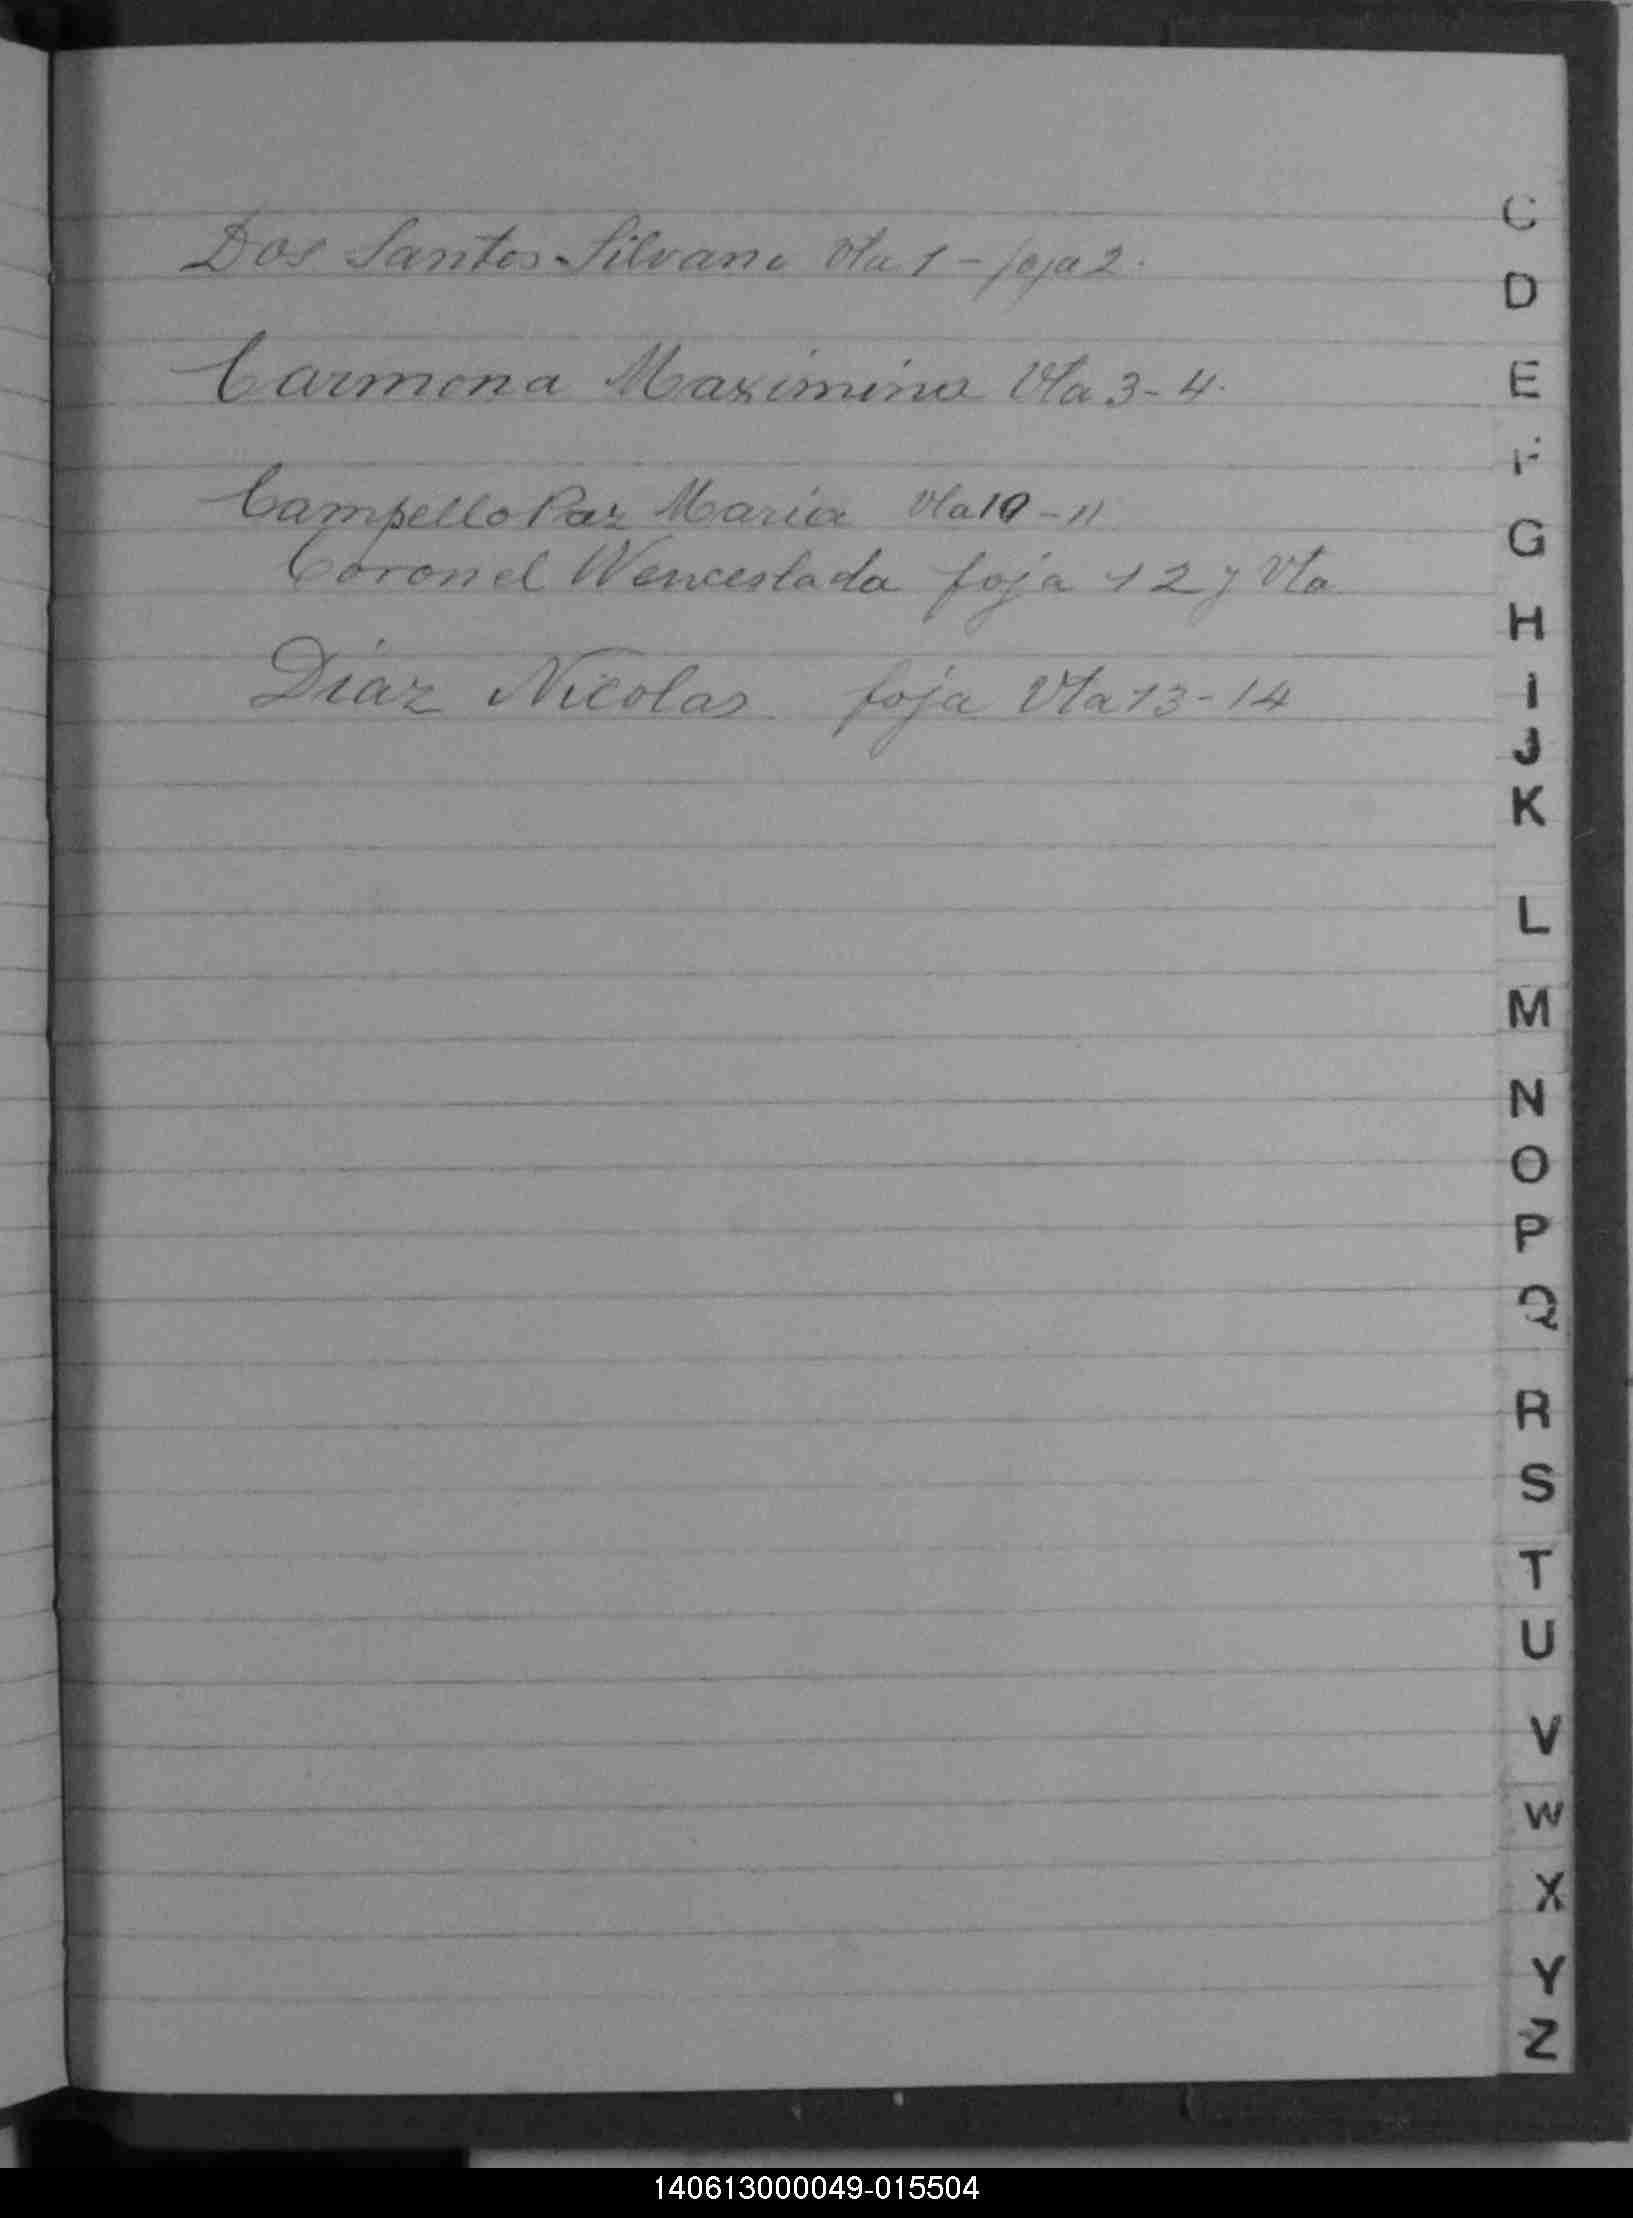 Dos Santos Silvano Vta 1 - foja 2.
Carmona Maximino Vta 3 - 4.
Campello Paz Maria Vta 10 - 11
Coronel Wenceslada foja 12 y Vta
Díaz Nicolas foja Vta 13 - 14
C
D
E
F
G
H
I
J
K
L
M
N
O
P
Q
R
S
T
U
V
W
X
Y
Z
140613000049-015504